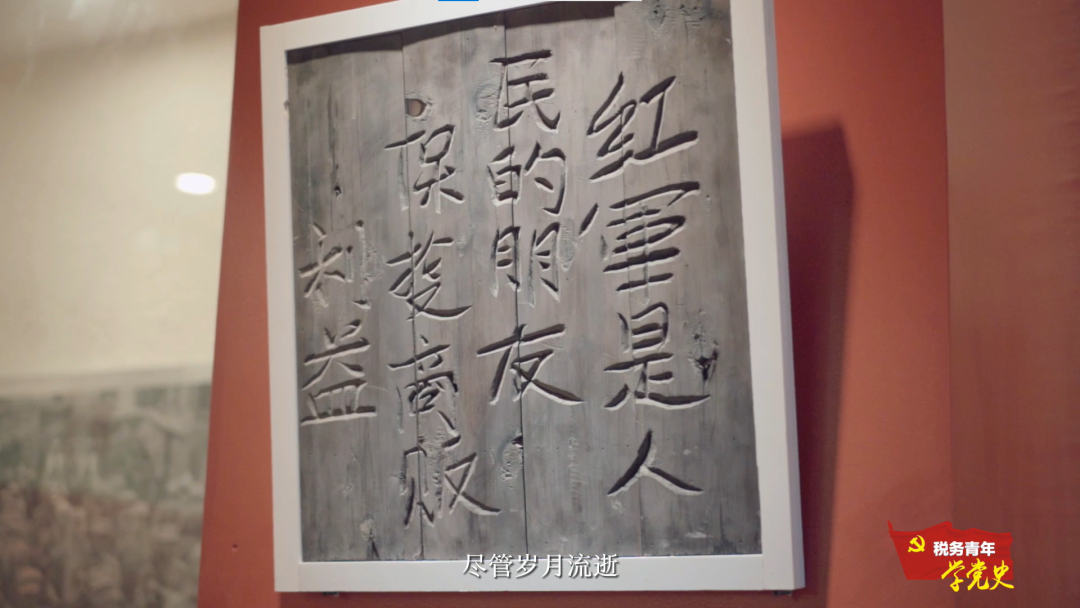 红軍是人
民的朋友
保护商贩
利益
尽管岁月流逝
税务青年
学党史